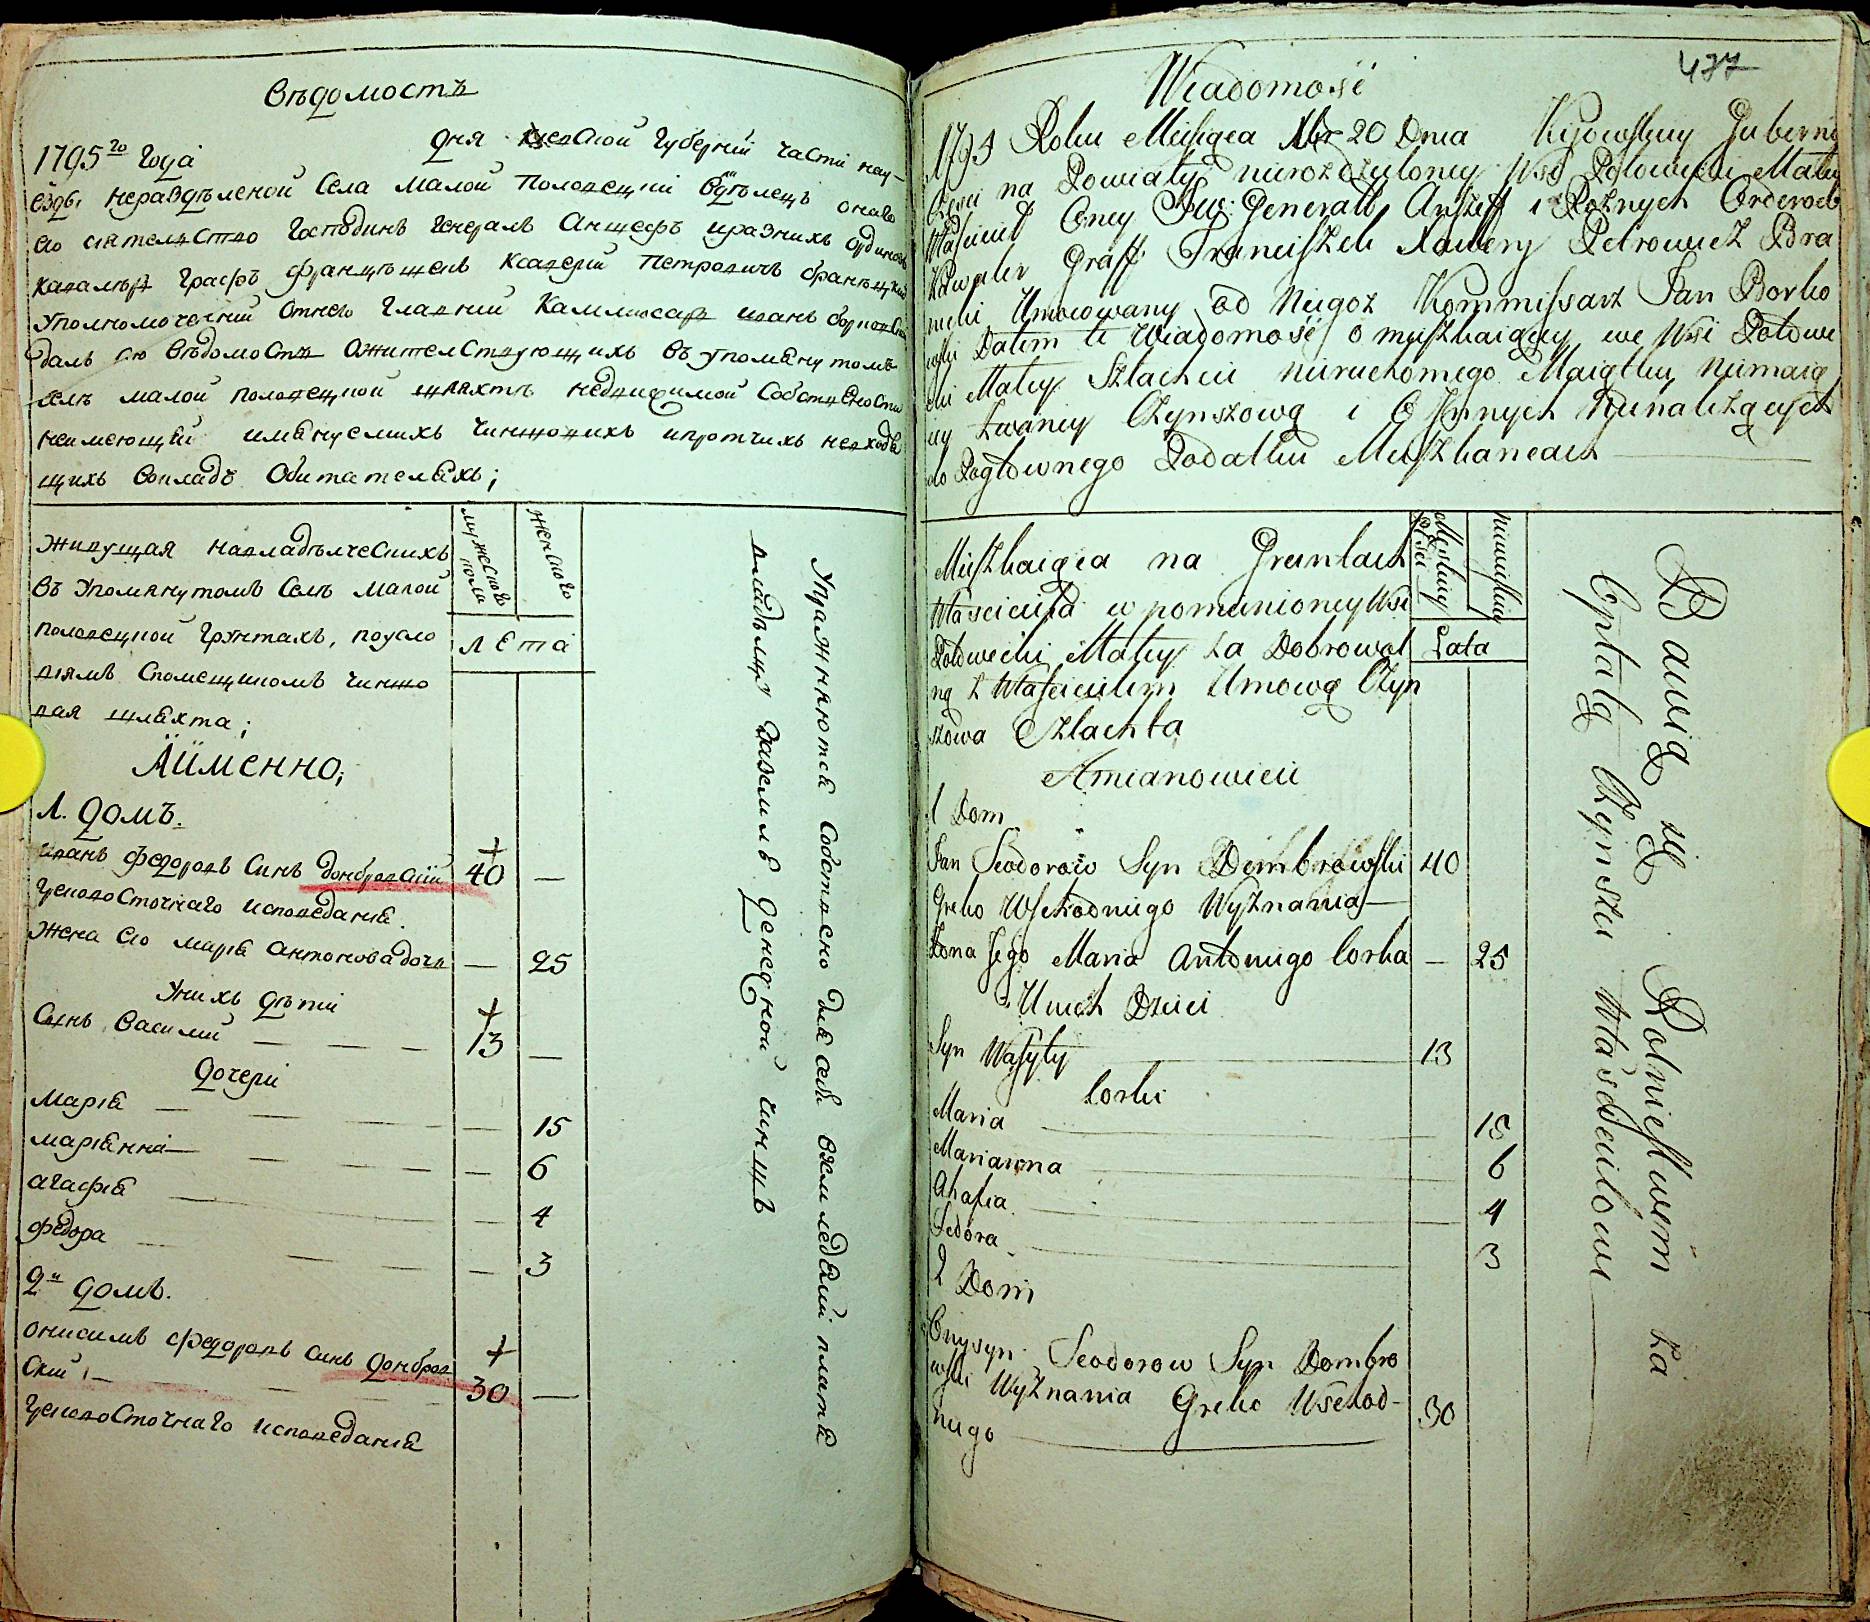 Вѣдомость
1795го года дня Киевской губерній части на у-
ѣзды неразделеной Села малой половецкій Владѣлецъ онаго
его сіятелство Господинъ Генералъ Аншефъ иразнихъ ординовъ
кавалеръ Графъ Францѣшекъ Ксаверій Петровичъ бранѣцкій
уполномоченій отнего Главній Каммисаръ иванъ борковскій
далъ сію вѣдомость ожителствующихъ въ упомянутомъ
селѣ малой половецкой шляхтѣ недвижимой собствености
неимеющей именуемихъ чиншовихъ ипротчихъ невходя
щихъ вокладъ обитателяхъ;
живущая навладѣлческихъ
въ упомянутомъ селѣ малой
половецкой грунтахъ, поусло
віямъ спомещикомъ чиншо
вая шляхта;
Аименно;
мужеского пола
женского
лета
1. домъ.
иванъ федоровъ синъ домбровскій 40 —
грековосточнаго исповеданія
жена его марія антонова дочь — 25
Унихъ дѣти
Синъ Василій — — — 13 —
дочери
Марія — — — — 15
маріянна — — — — 6
агафія — — 4
федора — — — 3
2й домъ.
онисимъ федоровъ синъ домбров
скій — — — 30 —
грековосточнаго исповеданія
Упражняются собствено для себя вземледелій платя
владѣлцу заземлѣ денежной чиншъ
477
Wiadomość
1795 Roku Miesiąca Xbr 20 Dnia Kijowskiey Guberni
Części na Powiaty nierozdzieloney Wsi Połowiecki Małey
Właściciel Oney Jw: Generałł Anszeff i Rożnych Orderow
Kawaler Graff Franciszek Xawery Petrowicz Bra
nicki Umocowany od Niegoż Kommissarz Jan Borko
wski Dałem tę Wiadomość o mieszkaiącey we Wsi Połowie
cki Małey Szlachcie nieruchomego Maiątku niemaią
cey Zwaney Czynszową i O Jnnych Nienależących
do Pogłownego Podatku Mieszkancach
Mieszkaiąca na Gruntach
Właściciela w pomienioney Wsi
Połowiecki Małey za Dobrowol
ną z Właścicielem Umową Czyn
szowa Szlachta
Amianowicie
Męskiey Płci
Niewieskiey
Lata
1 Dom
Jan Feodorow Syn Dembrowski 40
Greko Wschodniego Wyznania —
Zona Jego Maria Antoniego Corka — 25
U nich Dzieci
Syn Wasyly 13
Corki
Maria 15
Marianna 6
Ahafia 4
Fedora 3
2 Dom
Onysym Feodorow Syn Dombro
wski Wyznania Greko Wschod-
niego 30
Bawią się Rolnictwem za
Opłatą Czynszu Właścicielowi